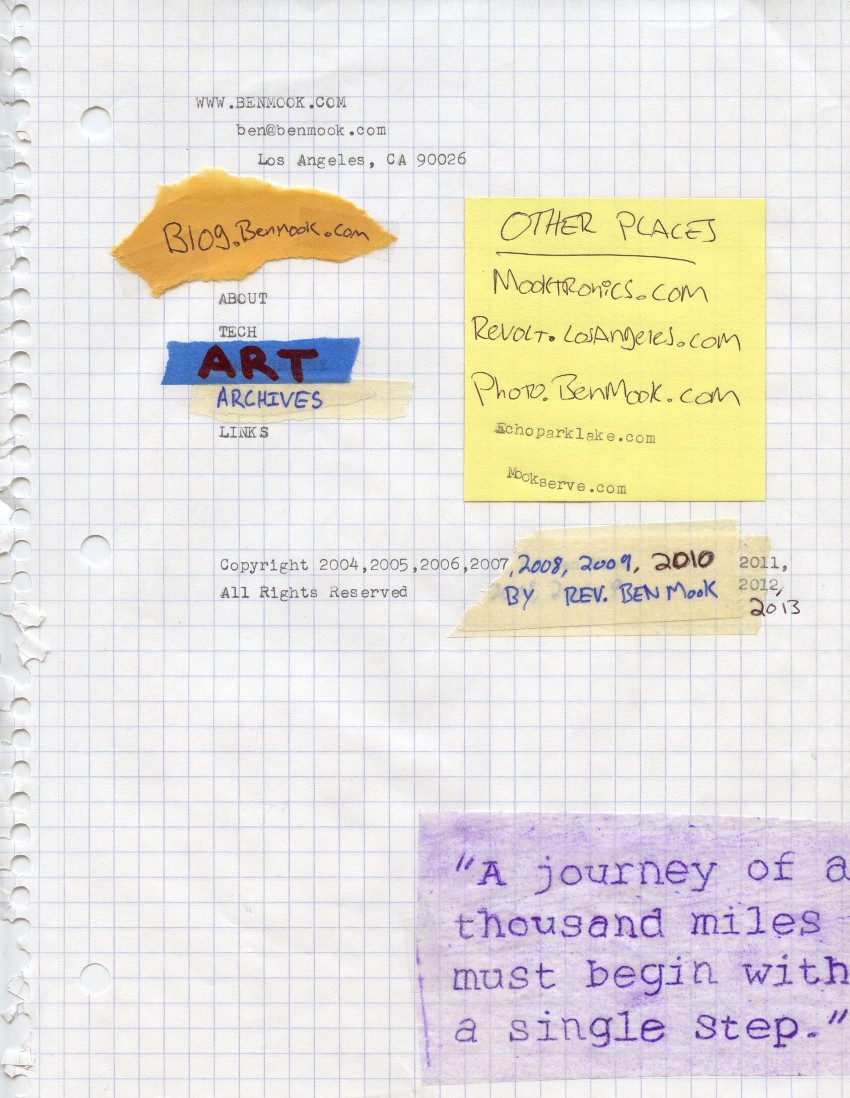 WWW.BENMOOK.COM
ben@benmook.com
Los Angeles, CA 90026
Blog.Benmook.com
ABOUT
TECH
ART
ARCHIVES
LINKS
OTHER PLACES
MOOKTRONICS.COM
REVOLT.LOSANGELES.COM
PHOTO.BENMOOK.COM
Echoparklake.com
Mookserve.com
Copyright 2004,2005,2006,2007,2008, 2009, 2010 2011,
All Rights Reserved BY REV. BEN MOOK 2012,
2013
"A journey of a
thousand miles
must begin with
a single step."